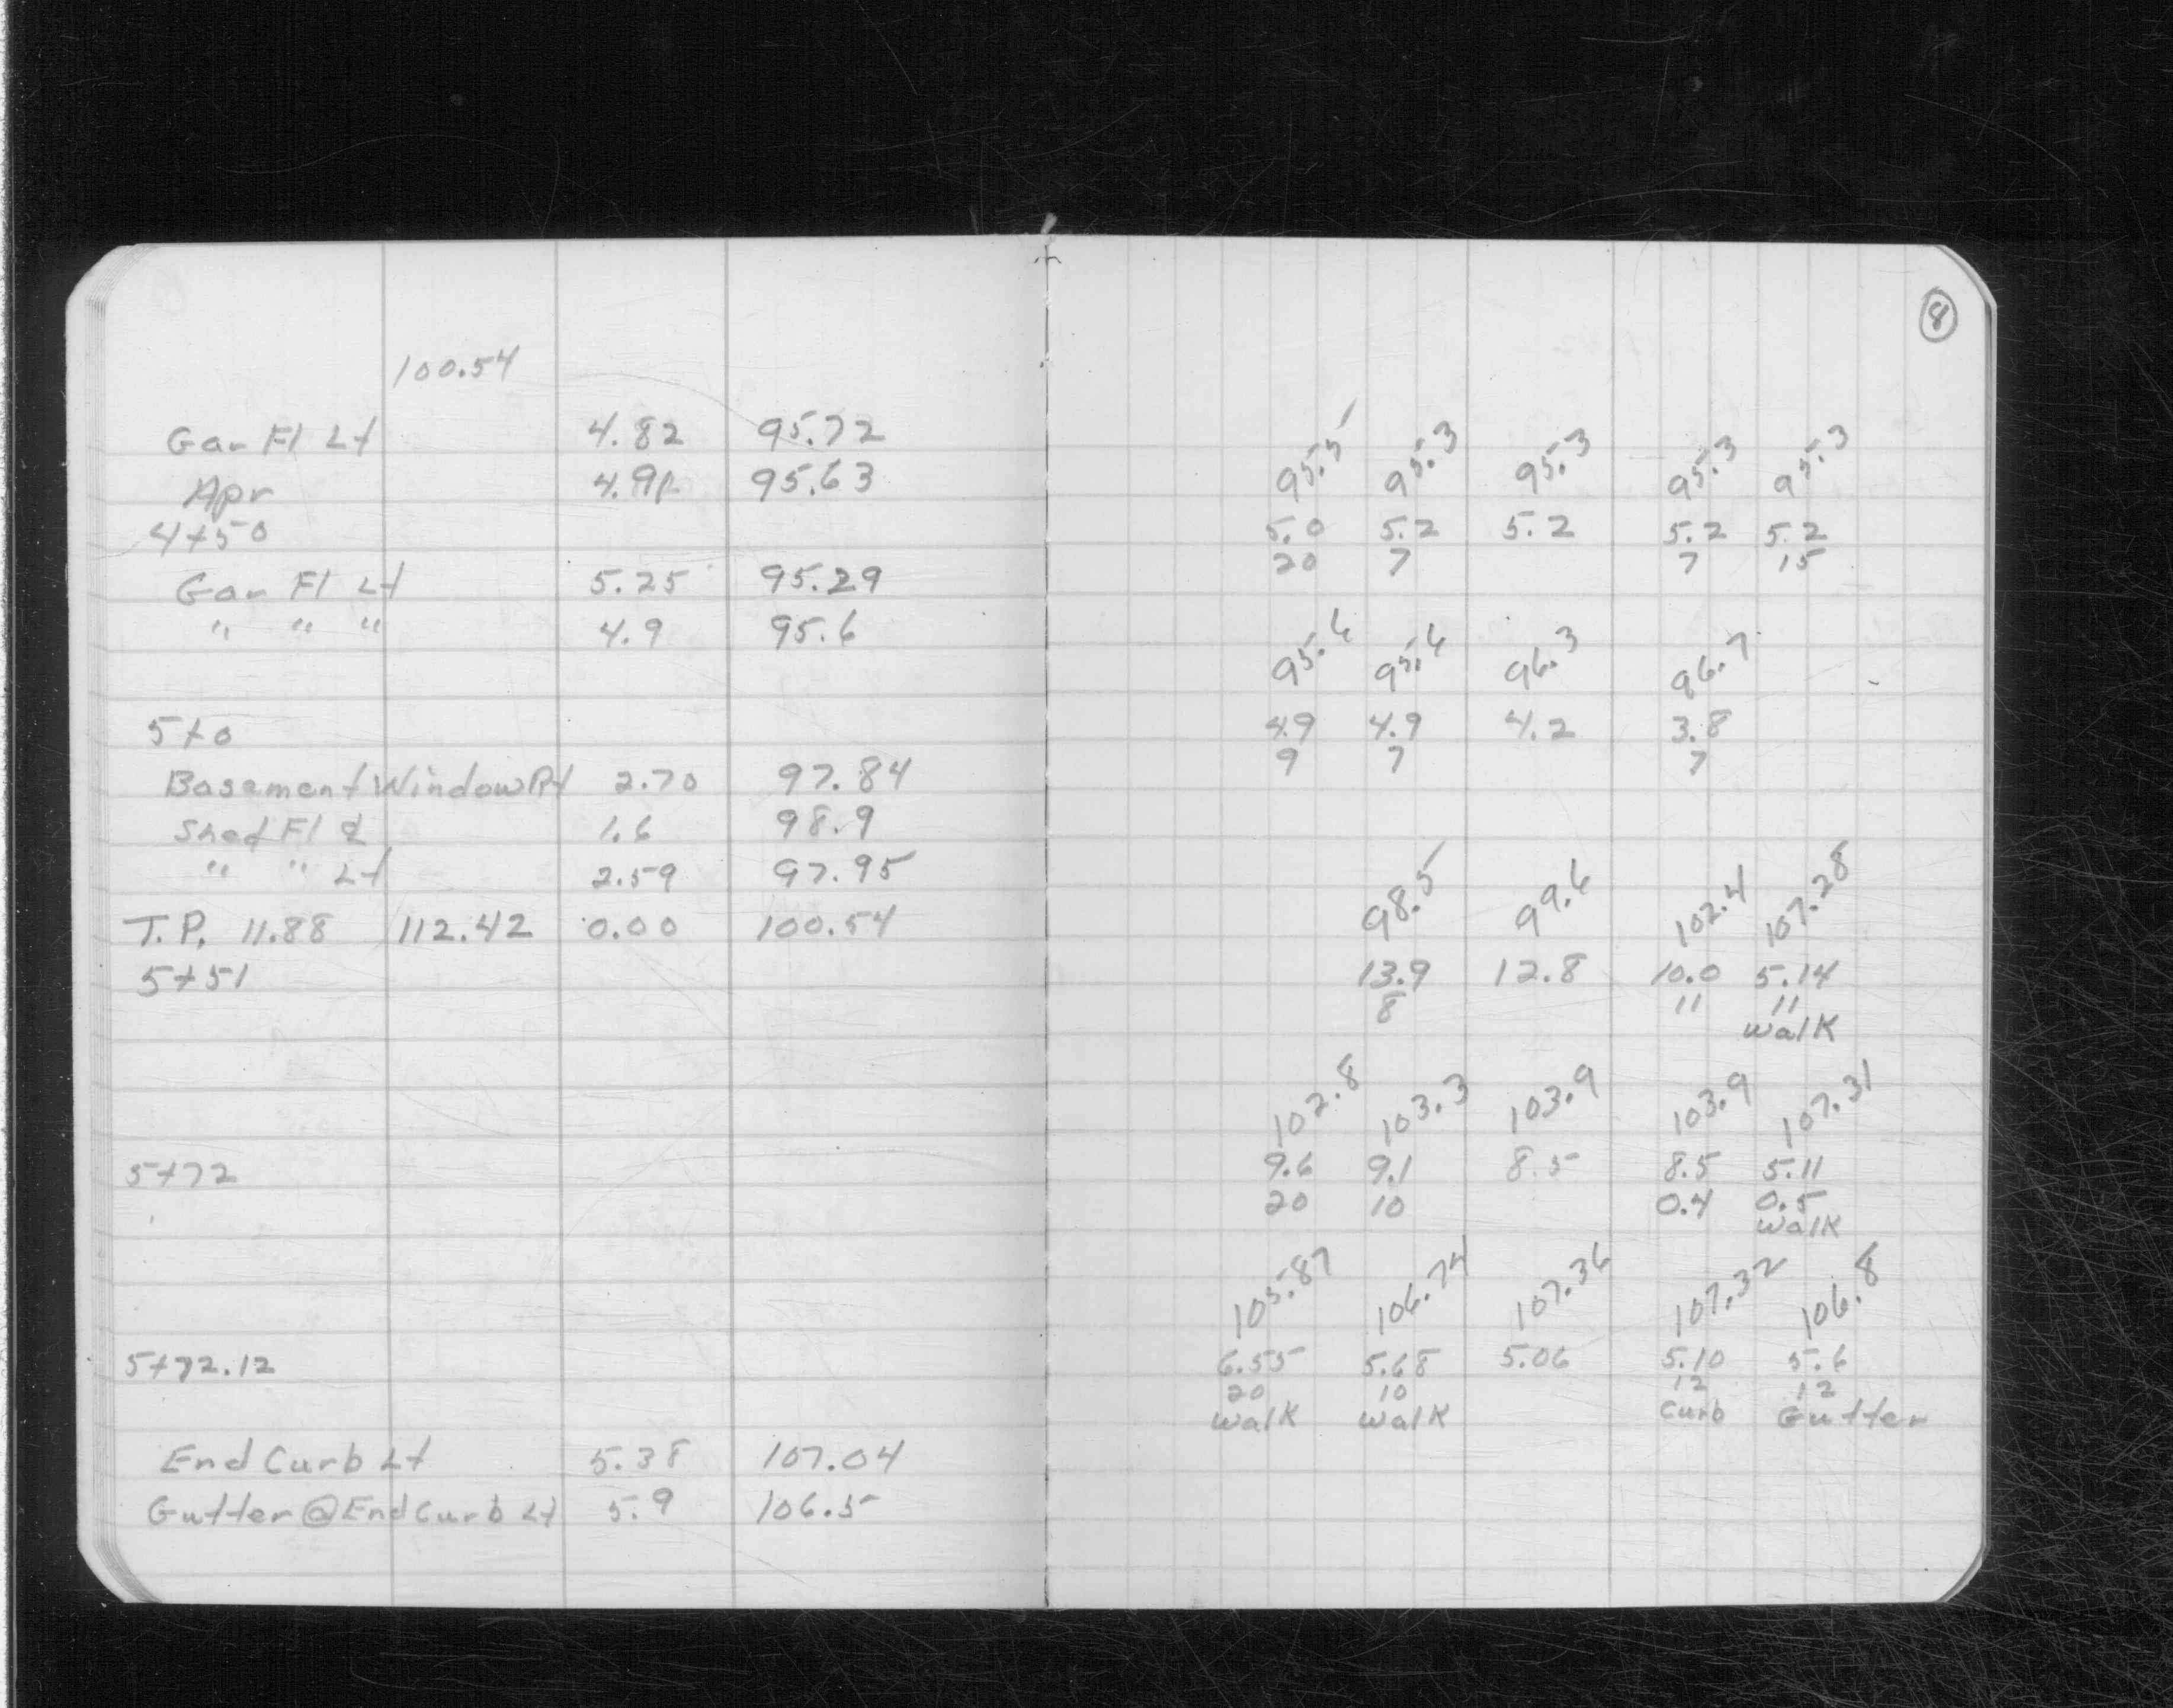 100.54
Gar Fl Lt 4.82 95.72
Apr 4.91 95.63
4+50
Gar Fl Lt 5.25 95.29
" " " 4.9 95.6
5+0
Basement Window Rt 2.70 97.84
Shed Fl ℄ 1.6 98.9
" " Lt 2.59 97.95
T.P. 11.88 112.42 0.00 100.54
5+51
5+72
5+72.12
End Curb Lt 5.38 107.04
Gutter @ End Curb Lt 5.9 106.5
8
95.5 95.3 95.3 95.3 95.3
5.0 5.2 5.2 5.2 5.2
20 7 7 15
95.6 95.6 96.3 96.7
4.9 4.9 4.2 3.8
9 7 7
98.5 99.6 102.4 107.28
13.9 12.8 10.0 5.14
8 11 11
walk
102.8 103.3 103.9 103.9 107.31
9.6 9.1 8.5 8.5 5.11
20 10 0.4 0.5
walk
105.87 106.74 107.36 107.32 106.8
6.55 5.68 5.06 5.10 5.6
20 10 12 12
walk walk curb Gutter